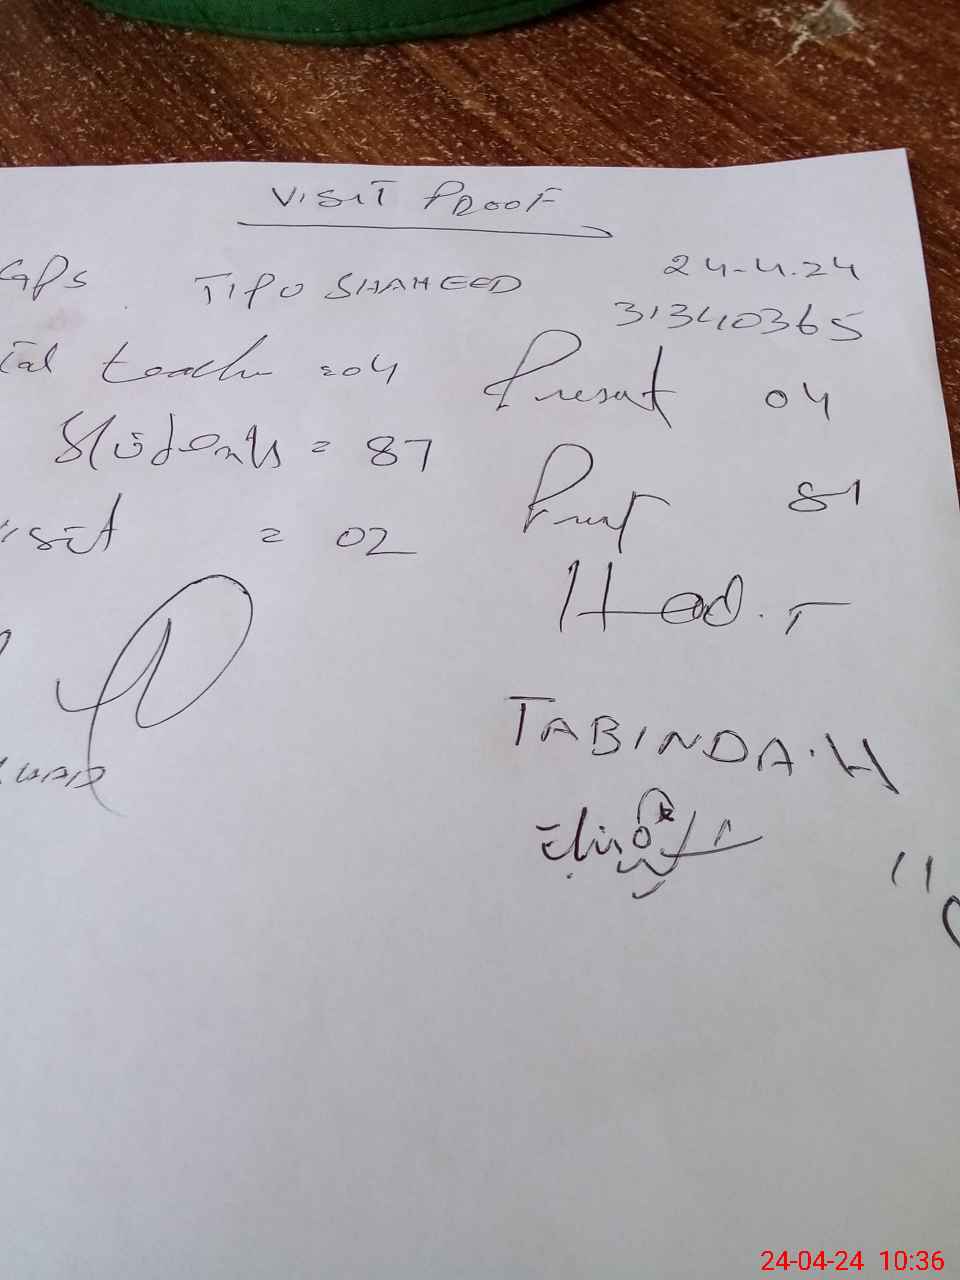 VISIT PROOF
GPS TIPU SHAHEED 24-4.24
31340365
tal teacher = 04 Present 04
Students = 87 Present 81
visit = 02
Head. T
TABINDA.H
24-04-24 10:36